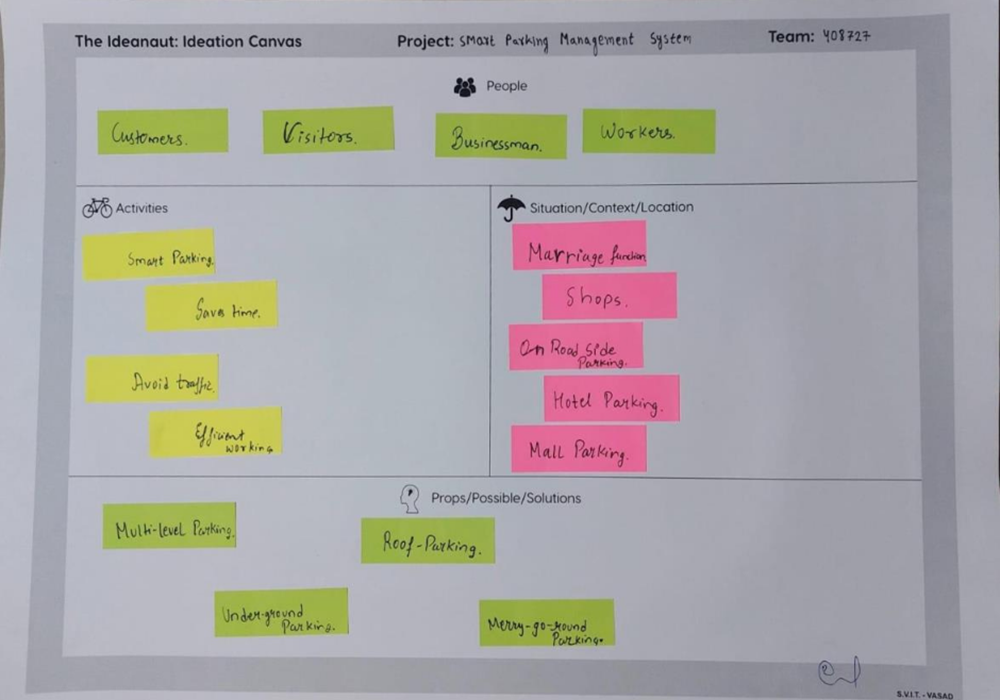 The Ideanaut: Ideation Canvas
Project: Smart Parking Management System
Team: 408727
People
Customers.
Visitors.
Businessman.
Workers.
Activities
Smart Parking.
Save time.
Avoid traffic.
Efficient
working.
Situation/Context/Location
Marriage function
Shops.
On Road Side
Parking.
Hotel Parking.
Mall Parking.
Props/Possible/Solutions
Multi-level Parking.
Roof-Parking.
Under-ground
Parking.
Merry-go-round
Parking.
S.V.I.T. - VASAD